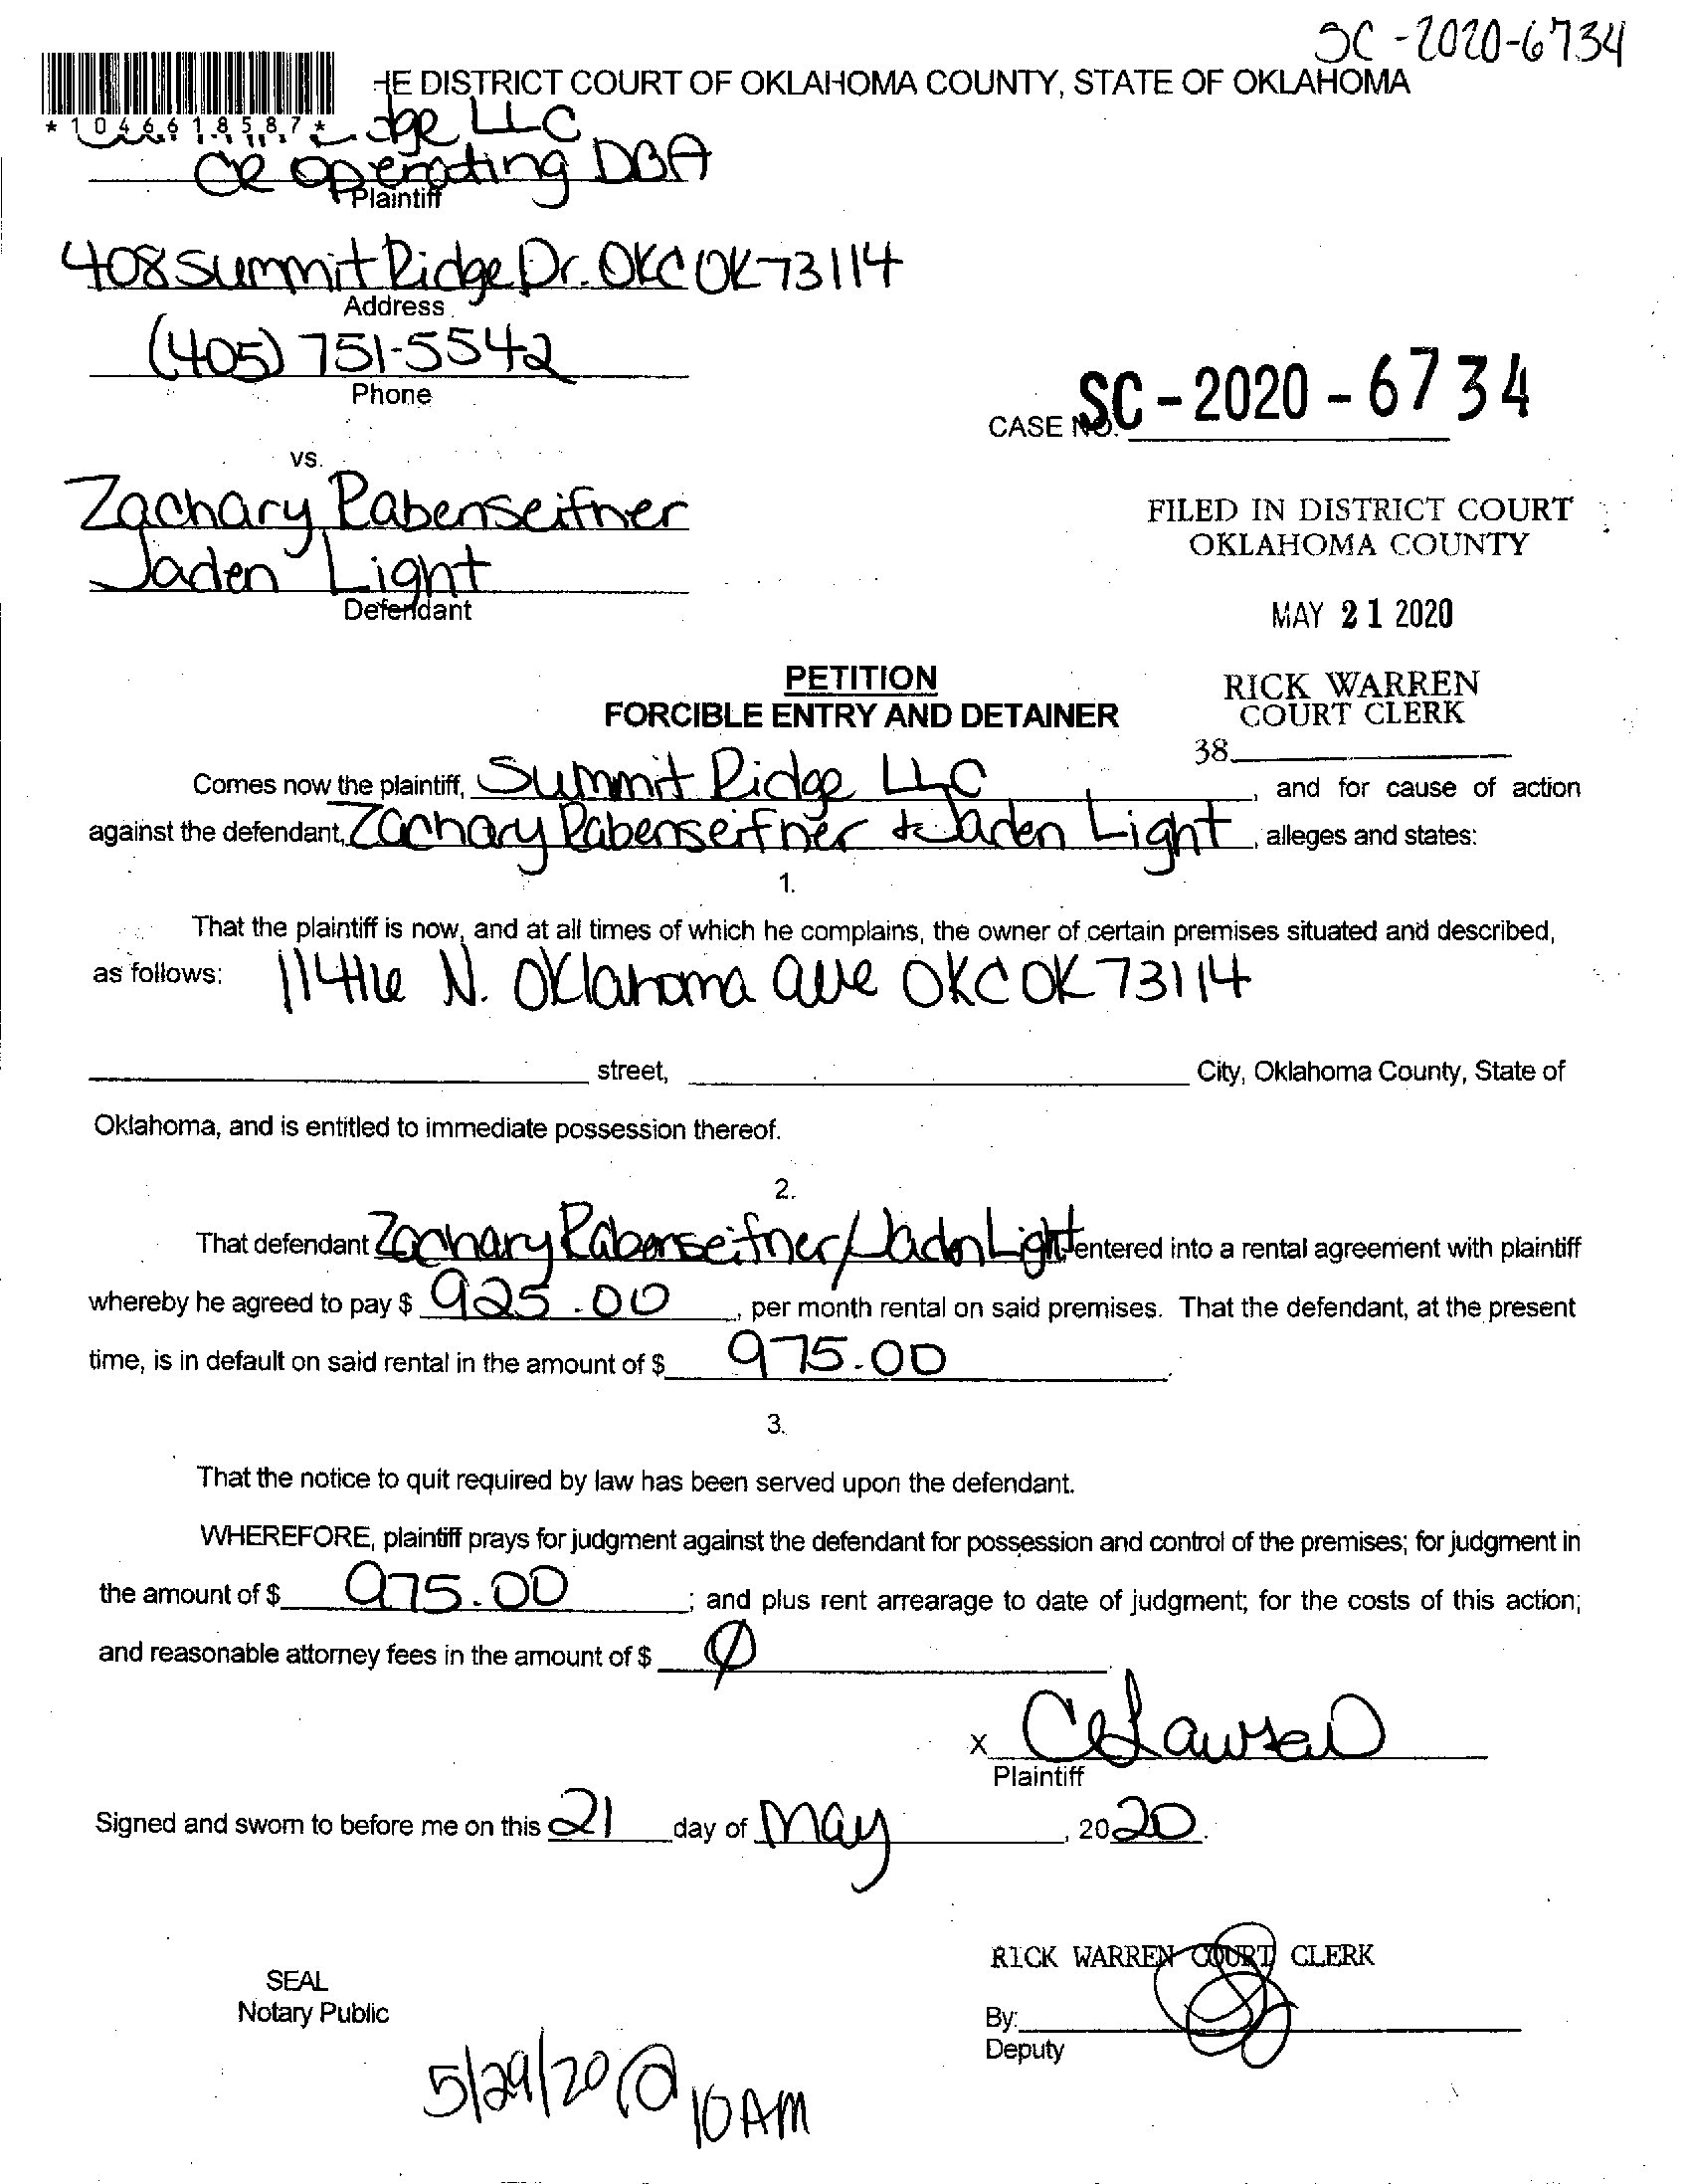 SC-2020-6734
HE DISTRICT COURT OF OKLAHOMA COUNTY, STATE OF OKLAHOMA
*1046618587*
dge LLC
CR operating DBA
Plaintiff
408 Summit Ridge Dr. OKC OK 73114
Address
(405) 751-5542
Phone
CASE NO. SC-2020-6734
vs.
Zachary Rabenseifner
Jaden Light
Defendant
FILED IN DISTRICT COURT
OKLAHOMA COUNTY
MAY 21 2020
RICK WARREN
COURT CLERK
38
PETITION
FORCIBLE ENTRY AND DETAINER
Comes now the plaintiff, Summit Ridge LLC, and for cause of action
against the defendant, Zachary Rabenseifner & Jaden Light, alleges and states:
1.
That the plaintiff is now, and at all times of which he complains, the owner of certain premises situated and described,
as follows: 11416 N. Oklahoma ave OKC OK 73114
street, City, Oklahoma County, State of
Oklahoma, and is entitled to immediate possession thereof.
2.
That defendant Zachary Rabenseifner/Jaden Light entered into a rental agreement with plaintiff
whereby he agreed to pay $ 925.00, per month rental on said premises. That the defendant, at the present
time, is in default on said rental in the amount of $ 975.00.
3.
That the notice to quit required by law has been served upon the defendant.
WHEREFORE, plaintiff prays for judgment against the defendant for possession and control of the premises; for judgment in
the amount of $ 975.00; and plus rent arrearage to date of judgment; for the costs of this action;
and reasonable attorney fees in the amount of $ Ø
x CLawson
Plaintiff
Signed and sworn to before me on this 21 day of May, 2020.
RICK WARREN COURT CLERK
SEAL
Notary Public
By:
Deputy
5/29/20 @ 10AM